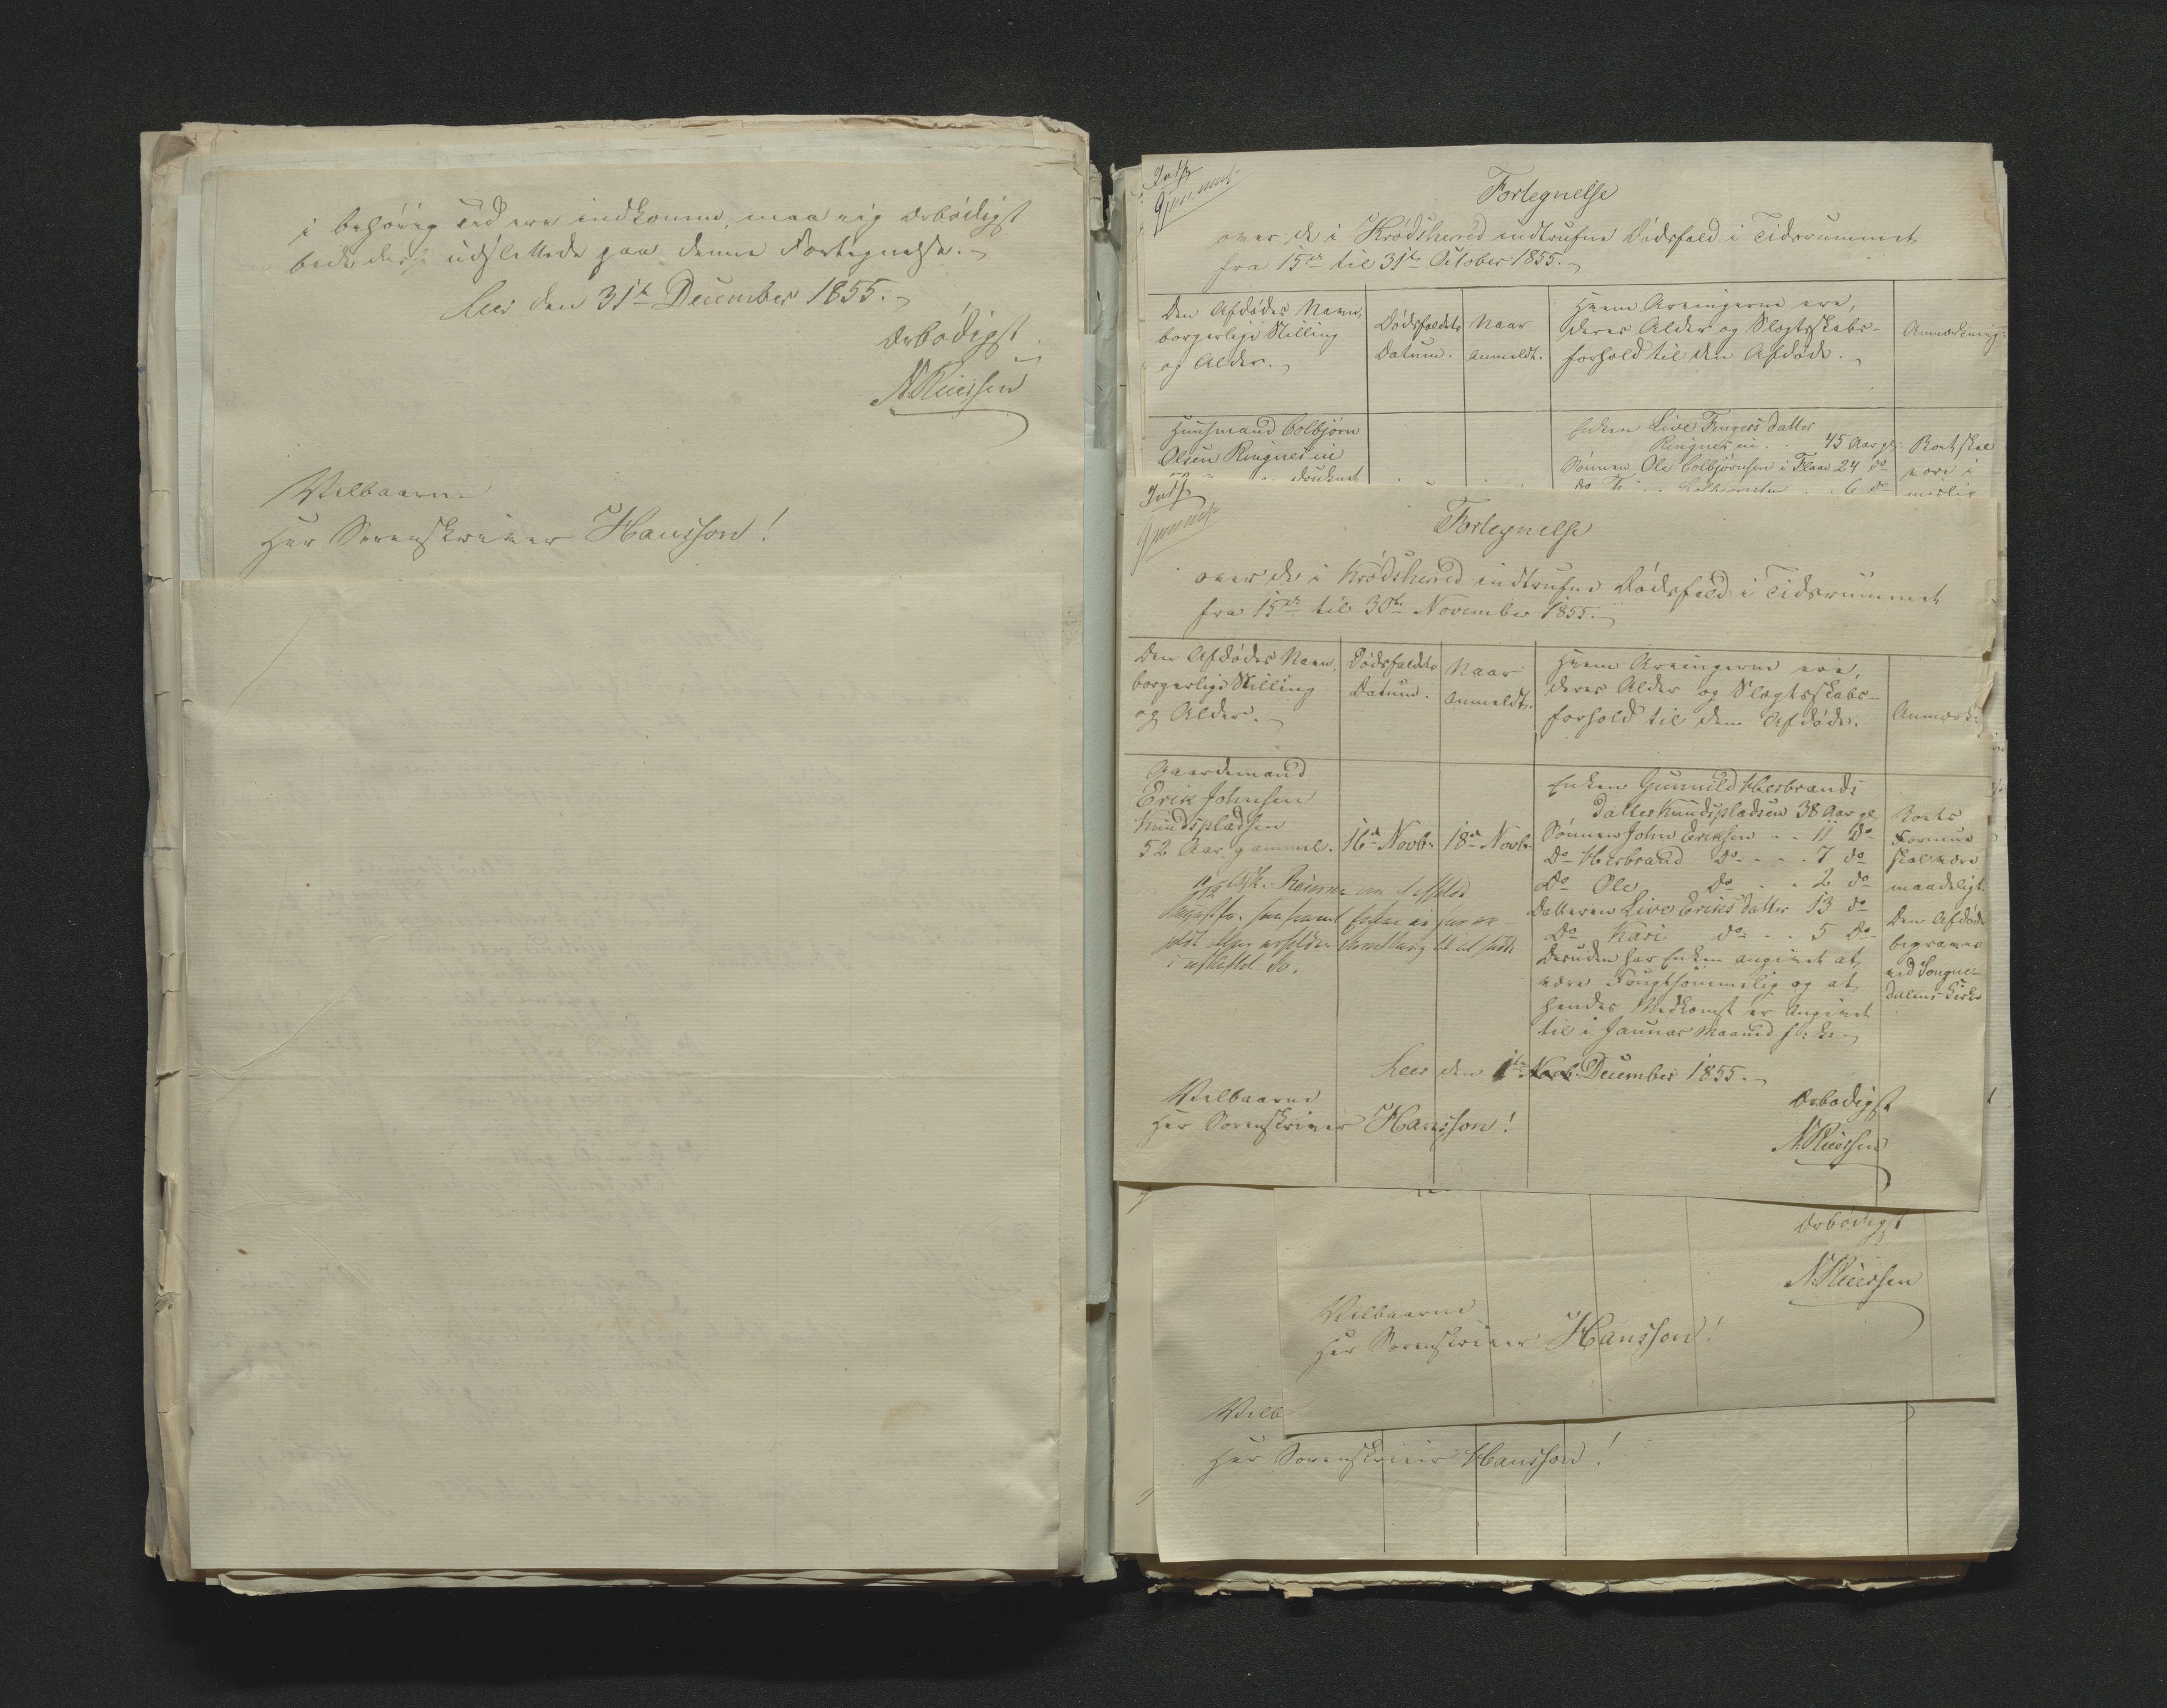 i behörig Tid ere indkomne, maa jeg ærbödigst
bede disse udslettede paa denne Fortegnelse.
Leer den 31te December 1855.
Ærbödigst
N. Reiersen
Velbaarne
Herr Sorenskriver Hansson!
Indf.
Fortegnelse
over de i Krödsherred indtrufne Dödsfald i Tidsrummet
fra 15de til 31te October 1855.
Den Afdödes Navn,
borgerlige Stilling
og Alder.
Dödsfaldets
Datum.
Naar
anmeldt.
Hvem Arvingerne ere,
deres Alder og Slægtskabs-
forhold til den Afdöde.
Anmærkning
Huusmand Colbjørn
Olsen Ringnes
druknet
Enken Live Fingers datter
Ringnes 45 Aar gl.
Sönnen Ole Colbjörnsen i Flaae 24 do
do 6 do
Boet skal
være i
Indf.
Fortegnelse
over de i Krödsherred indtrufne Dödsfald i Tidsrummet
fra 15de til 30te November 1855.
Den Afdödes Navn,
borgerlige Stilling
og Alder.
Dödsfaldets
Datum.
Naar
anmeldt.
Hvem Arvingerne ere,
deres Alder og Slægtskabs-
forhold til den Afdöde.
Anmærk:
Gaardmand
Erik Johnsen
Knudspladsen
52 Aar gammel.
16de Novbr
18de Novbr
Enken Gunnild Herbrands
datter Knudspladsen 38 Aar gl.
Sönnen John Eriksen 11 do
do Herbrand do 7 do
do Ole do 2 do
Datteren Live Eriks datter 13 do
do Kari do 5 do
Desuden har Enken angivet at
være Frugtsommelig og at
hendes Nedkomst er angivet
til i Januar Maaned f. A.
Boets
Formue
skal være
maadeligt.
Den Afdöde
begraves
ved Sogne-
dalens Kirke
Leer den 1te Novb. December 1855.
Velbaarne
Herr Sorenskriver Hansson!
Ærbödigst
N. Reiersen
Ærbödigst
N. Reiersen
Velbaarne
Herr Sorenskriver Hansson!
Velb
Herr Sorenskriver Hansson!